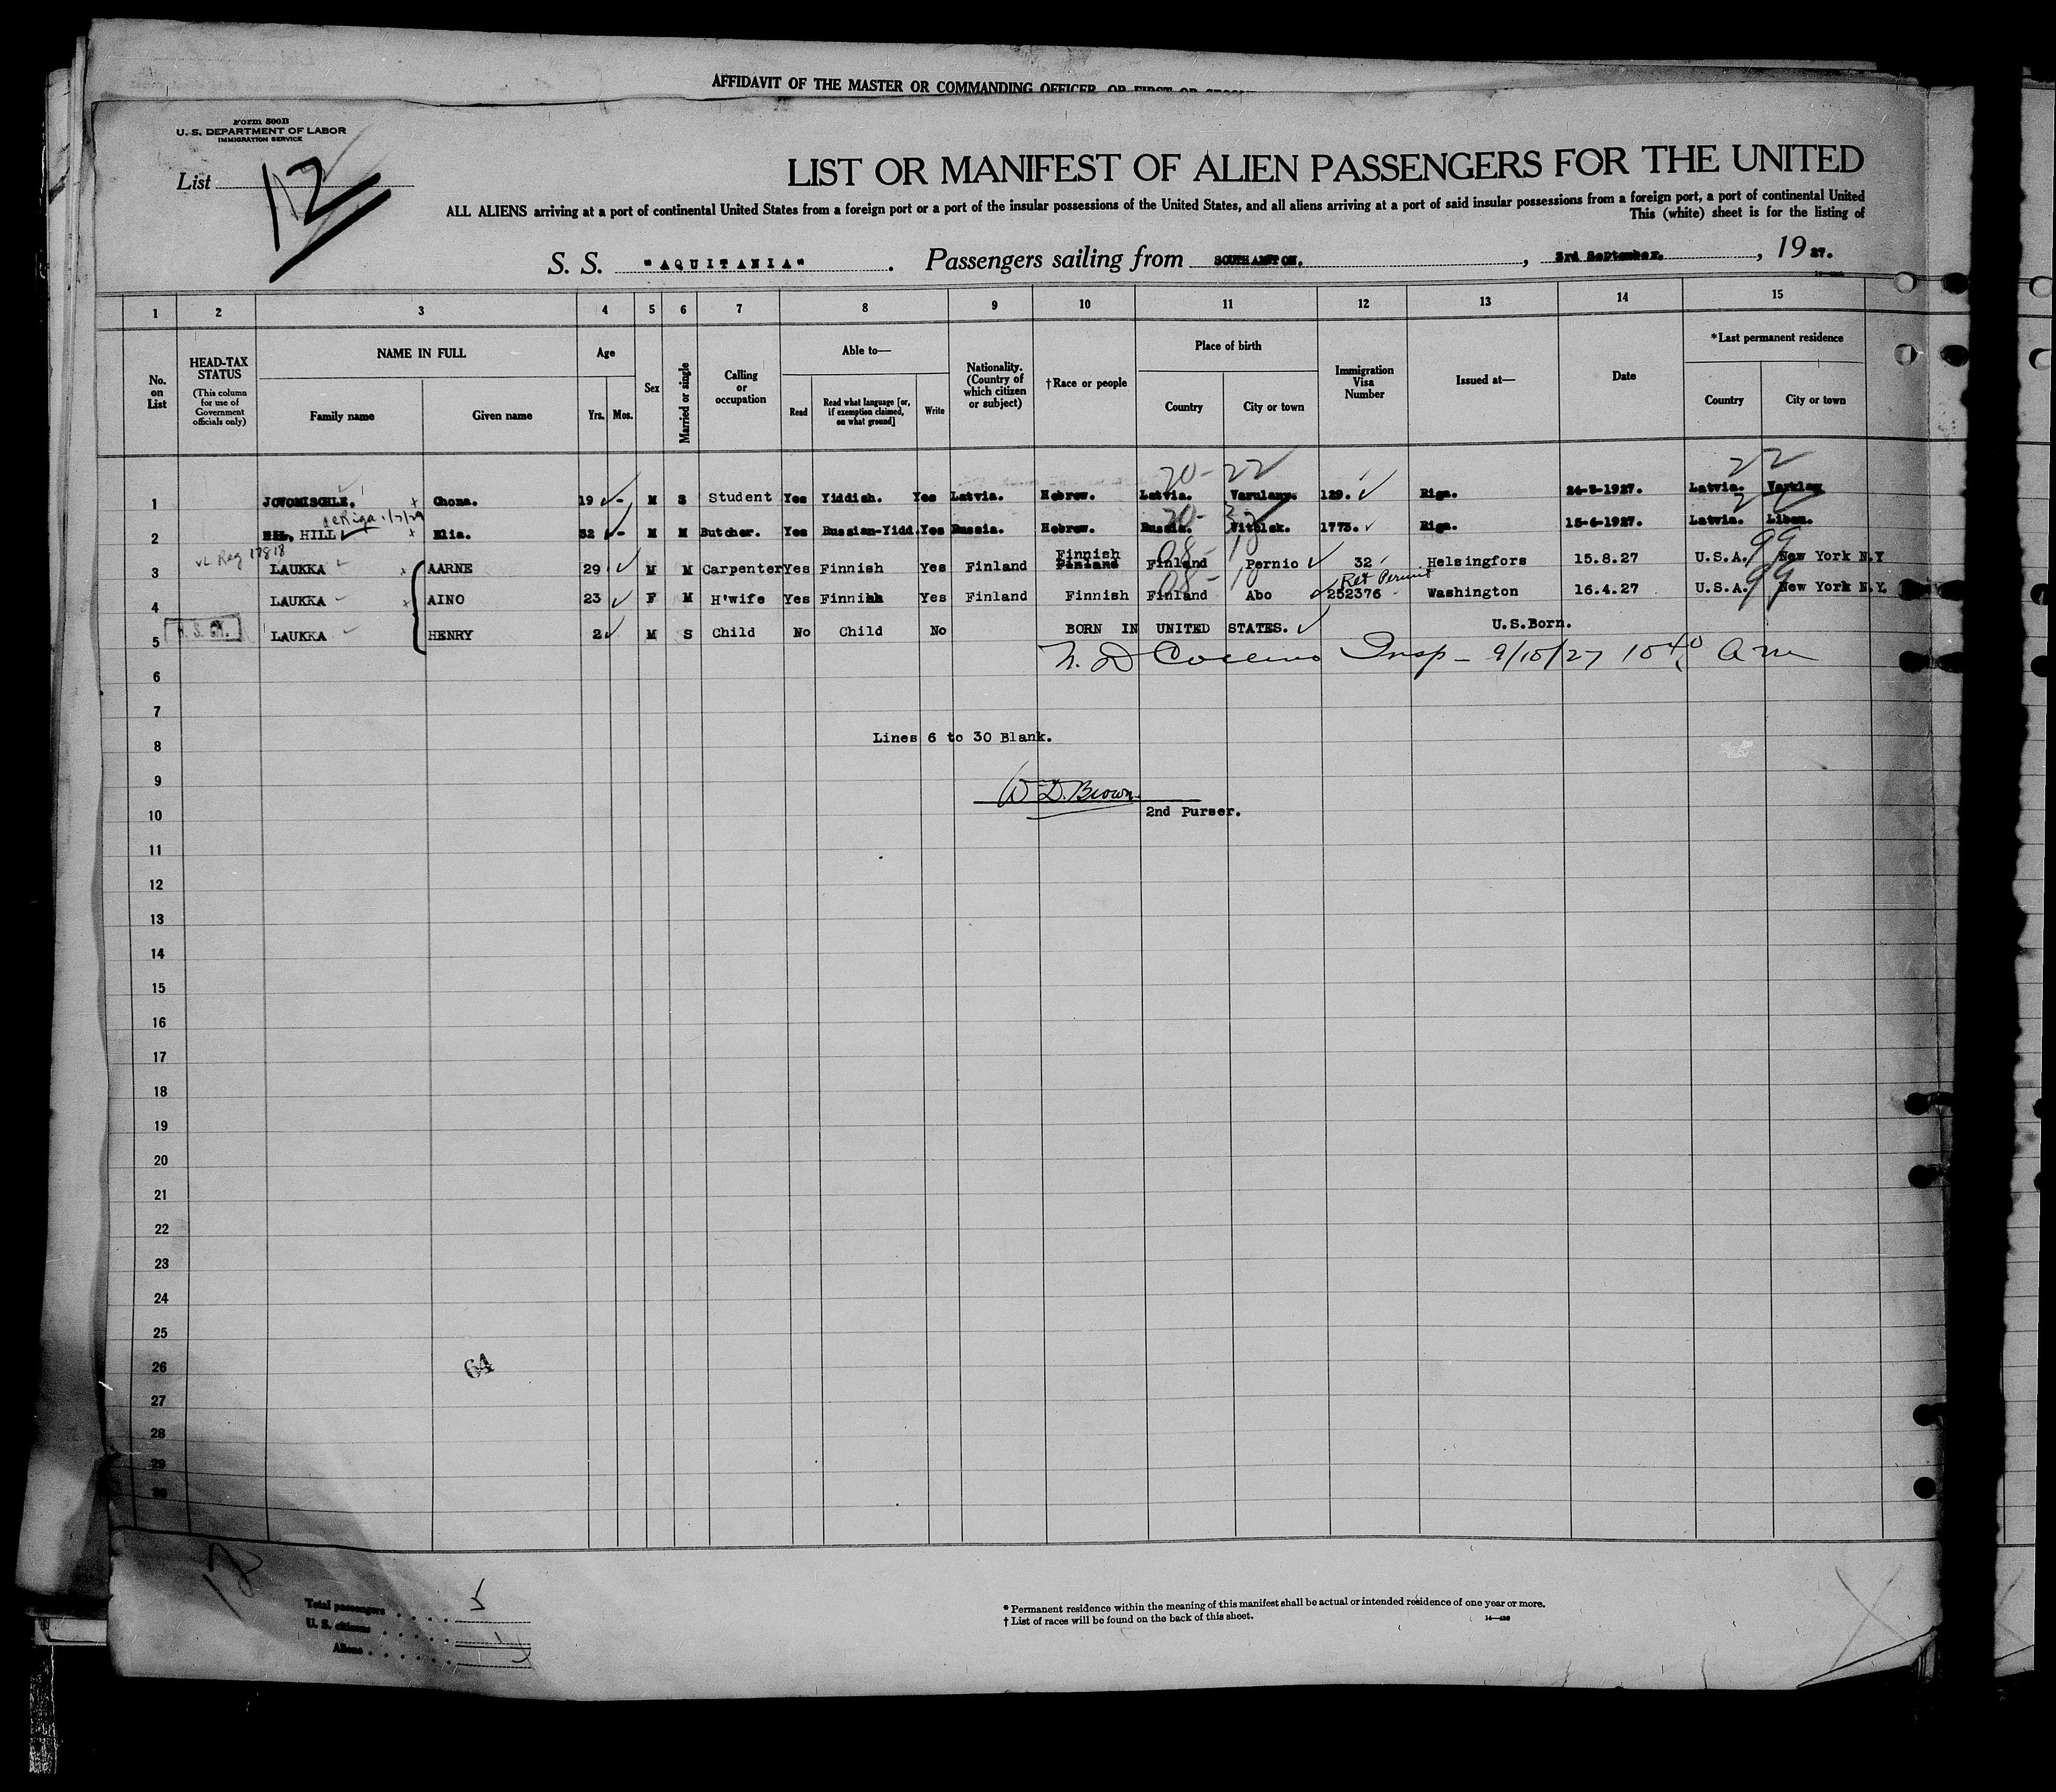 AFFIDAVIT OF THE MASTER OR COMMANDING OFFICER, OR FIRST OR
Form 500B
U. S. DEPARTMENT OF LABOR
IMMIGRATION SERVICE
List 12
LIST OR MANIFEST OF ALIEN PASSENGERS FOR THE UNITED
ALL ALIENS arriving at a port of continental United States from a foreign port or a port of the insular possessions of the United States, and all aliens arriving at a port of said insular possessions from a foreign port, a port of continental United
This (white) sheet is for the listing of
S. S. "AQUITANIA". Passengers sailing from SOUTHAMPTON., 3rd September., 1927.
1 2 3 4 5 6 7 8 9 10 11 12 13 14 15
No. on List
HEAD-TAX STATUS
(This column for use of Government officials only)
NAME IN FULL
Family name Given name
Age
Yrs. Mos.
Sex
Married or single
Calling or occupation
Able to—
Read Read what language [or, if exemption claimed, on what ground] Write
Nationality. (Country of which citizen or subject)
†Race or people
Place of birth
Country City or town
Immigration Visa Number
Issued at—
Date
*Last permanent residence
Country City or town
20-22 22
1 JOVOMISCHLE. Chona. 19 - M S Student Yes Yiddish. Yes Latvia. Hebrew. Latvia. 129. Riga. 1927. Latvia.
2 HILL Elia. 32 - M M Butcher. Yes Russian-Yidd. Yes Russia. Hebrew. Russia. Vitebsk. 1773. Riga. 15-6-1927. Latvia. Libau.
vL Reg 17818
08-10 99
3 LAUKKA AARNE 29 M M Carpenter Yes Finnish Yes Finland Finnish Finland Pernio 32 Helsingfors 15.8.27 U.S.A. New York N.Y
08-10 Ret Permit 99
4 LAUKKA AINO 23 F M H'wife Yes Finnish Yes Finland Finnish Finland Abo 252376 Washington 16.4.27 U.S.A. New York N.Y.
5 LAUKKA HENRY 2 M S Child No Child No BORN IN UNITED STATES. U.S.Born.
Insp - 9/10/27 10 40 am
6
7
8 Lines 6 to 30 Blank.
9 W. D. Brown
10 2nd Purser.
11
12
13
14
15
16
17
18
19
20
21
22
23
24
25
26 64
27
28
29
30
12
Total passengers 5
U. S. citizens 1
Aliens
* Permanent residence within the meaning of this manifest shall be actual or intended residence of one year or more.
† List of races will be found on the back of this sheet.